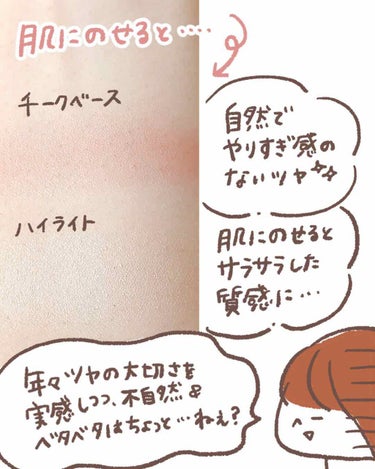 肌にのせると‥‥
チークベース
自然で
やりすぎ感の
ないツヤ
ハイライト
肌にのせると
サラサラした
質感に…
年々ツヤの大切さを
実感しつつ、不自然&
ベタベタはちょっと…ねぇ?